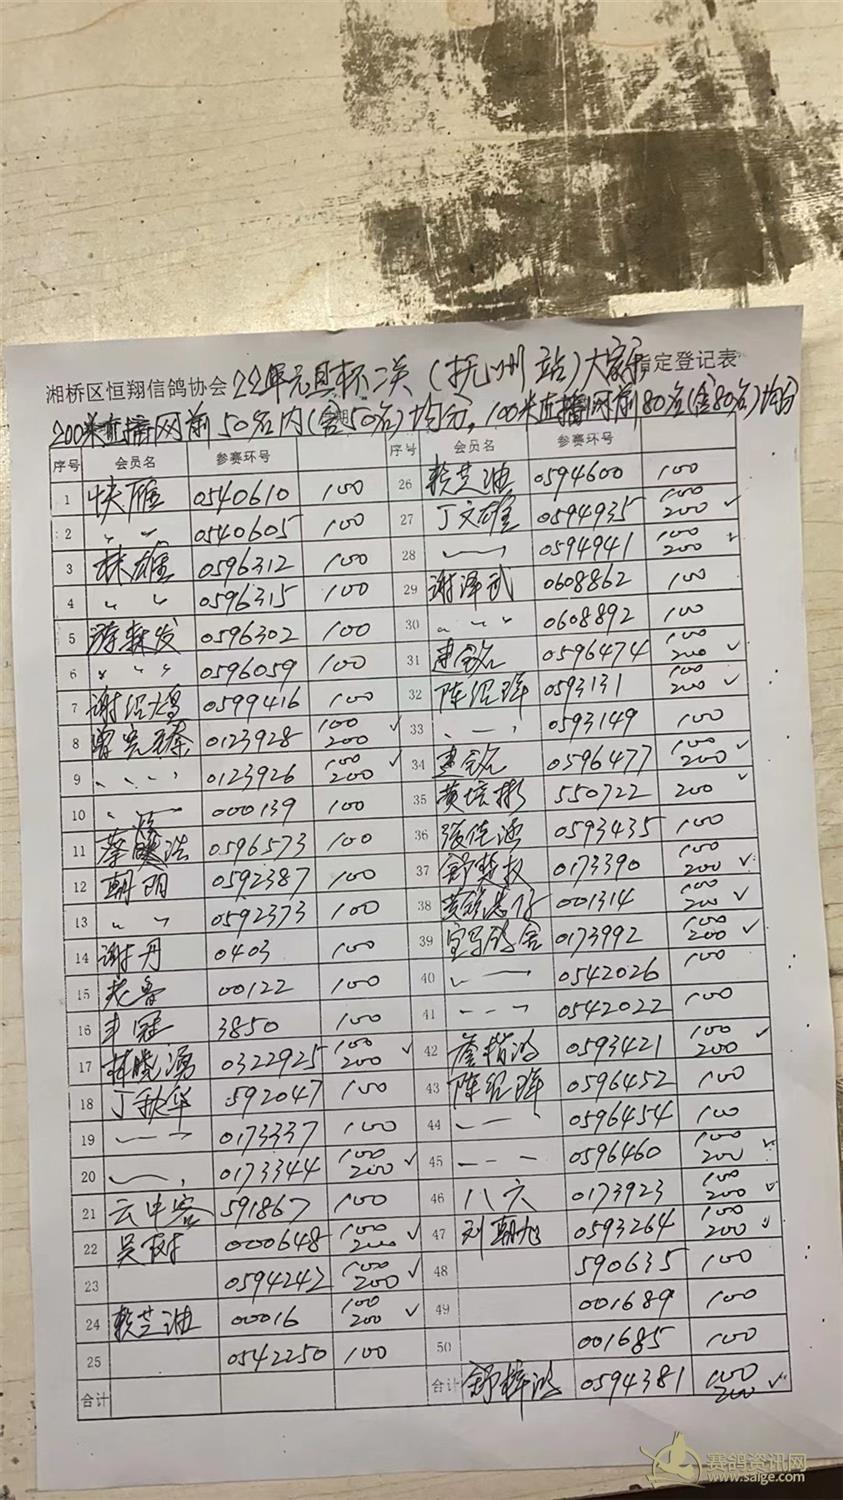 湘桥区恒翔信鸽协会22年元旦杯二关(抚州站)大家 指定登记表
200米直播网前50名内(含50名)均分,100米直播网前80名(含80名)均分
序号 会员名 参赛环号 序号 会员名 参赛环号
1 快雁 0540610 100 26 赖芝迪 0594600 100
2 〃 〃 0540605 100 27 丁文雄 0594935 100 200 ✓
3 林雄 0596312 100 28 0594941 100 200 ✓
4 〃 〃 0596315 100 29 谢泽武 0608862 100
5 游森发 0596302 100 30 〃 〃 〃 0608892 100
6 〃 〃 〃 0596059 100 31 0596474 100 200 ✓
7 0599416 100 32 陈绍辉 0593131 100 200 ✓
8 0123928 100 200 ✓ 33 0593149 100
9 0123926 100 200 ✓ 34 0596477 100 200 ✓
10 000139 100 35 黄培彬 550722 200 ✓
11 蔡 浩 0596573 100 36 张佳涵 0593435 100
12 朝明 0592387 100 37 舒楚权 0173390 100 200 ✓
13 〃 〃 0592373 100 38 001314 100 200 ✓
14 谢丹 0403 100 39 宝马鸽舍 0173992 100 200 ✓
15 老鲁 00122 100 40 0542026 100
16 丰冠 3850 100 41 0542022 100
17 林晓涌 0322925 100 200 ✓ 42 0593421 100 200 ✓
18 丁秋华 592047 100 43 陈绍辉 0596452 100
19 0173337 100 44 0596454 100
20 0173344 100 200 ✓ 45 0596460 100 200 ✓
21 云中客 591867 100 46 八六 0173923 100 200 ✓
22 吴树 000648 100 200 ✓ 47 刘朝旭 0593264 100 200 ✓
23 0594242 100 200 ✓ 48 590635 100
24 赖芝迪 00016 100 200 ✓ 49 001689 100
25 0542250 100 50 001685 100
合计 合计 舒梓鸿 0594381 100 200 ✓
赛鸽资讯网
www.saige.com